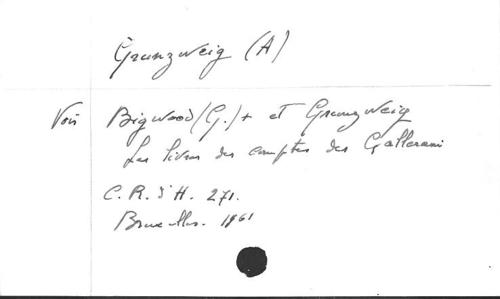 Grunzweig (A)
Voir Bigwood (G.) + et Grunzweig
Les livres des comptes des Gallerani
C.R.d'H. 271.
Bruxelles. 1961